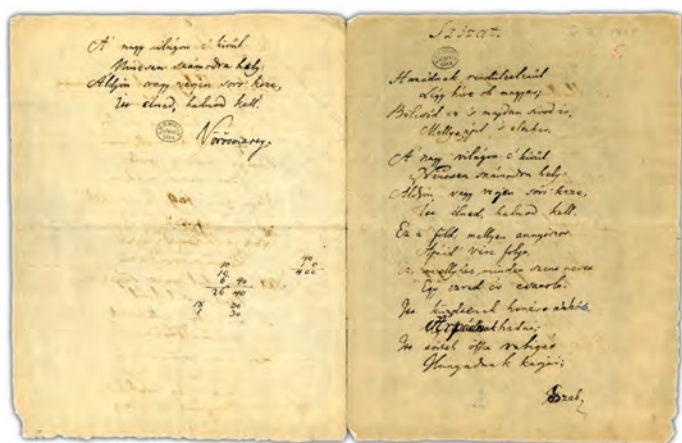 A' nagy világon e' kivűl
Nincsen számodra hely;
Áldjon vagy verjen sors keze,
Itt élned, halnod kell.
Vörösmarty.
10
10
6 40
26 40
30
30
40
400
Szózat.
5.
Hazádnak rendületlenűl
Légy híve oh magyar;
Bölcsőd ez 's majdan sirod is,
Melly ápol 's eltakar.
A' nagy világon e' kivűl
Nincsen számodra hely;
Áldjon vagy verjen sors keze,
Itt élned, halnod kell.
Ez a' föld, mellyen annyiszor
Apáid vére folyt;
Ez, mellyhez minden szent nevet
Egy ezred év csatolt.
Itt küzdtenek honért a' hős
Árpádnak hadai;
Itt törtek össze rabigát
Hunyadnak karjai;
Szab